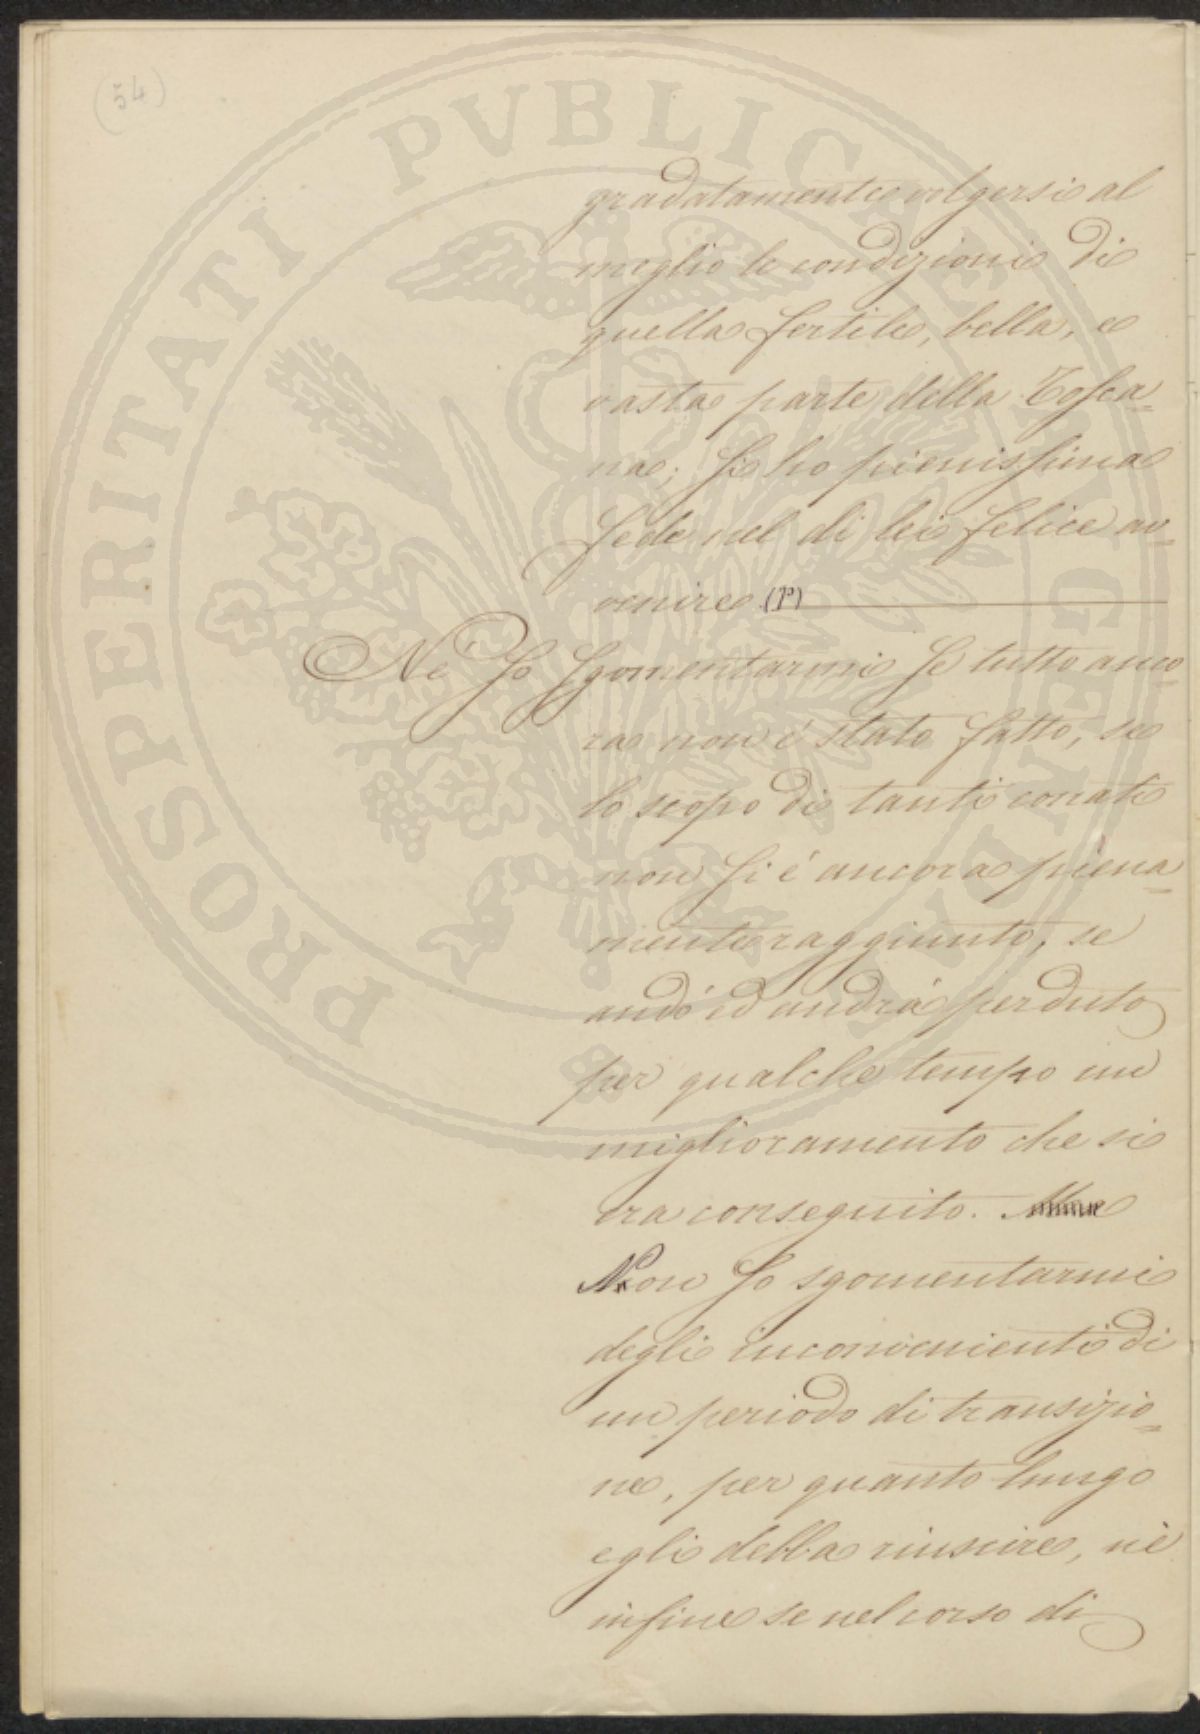 (54)
PROSPERITATI PVBLICAE AVGENDAE
gradatamente volgersi al
meglio le condizioni di
quella fertile, bella, e
vasta parte della Tosca=
na; si ho pienissima
fede nel di lei felice av=
venire (P)
Né so sgomentarmi se tutto anco=
ra non é stato fatto, se
lo scopo di tanti conati
non si é ancora piena=
mente raggiunto, se
andó ed andrá perduto
per qualche tempo un
miglioramento che si
era conseguito.
Non so sgomentarmi
degli inconvenienti di
un periodo di transizio=
ne, per quanto lungo
egli debba riuscire, né
infine se nel corso di